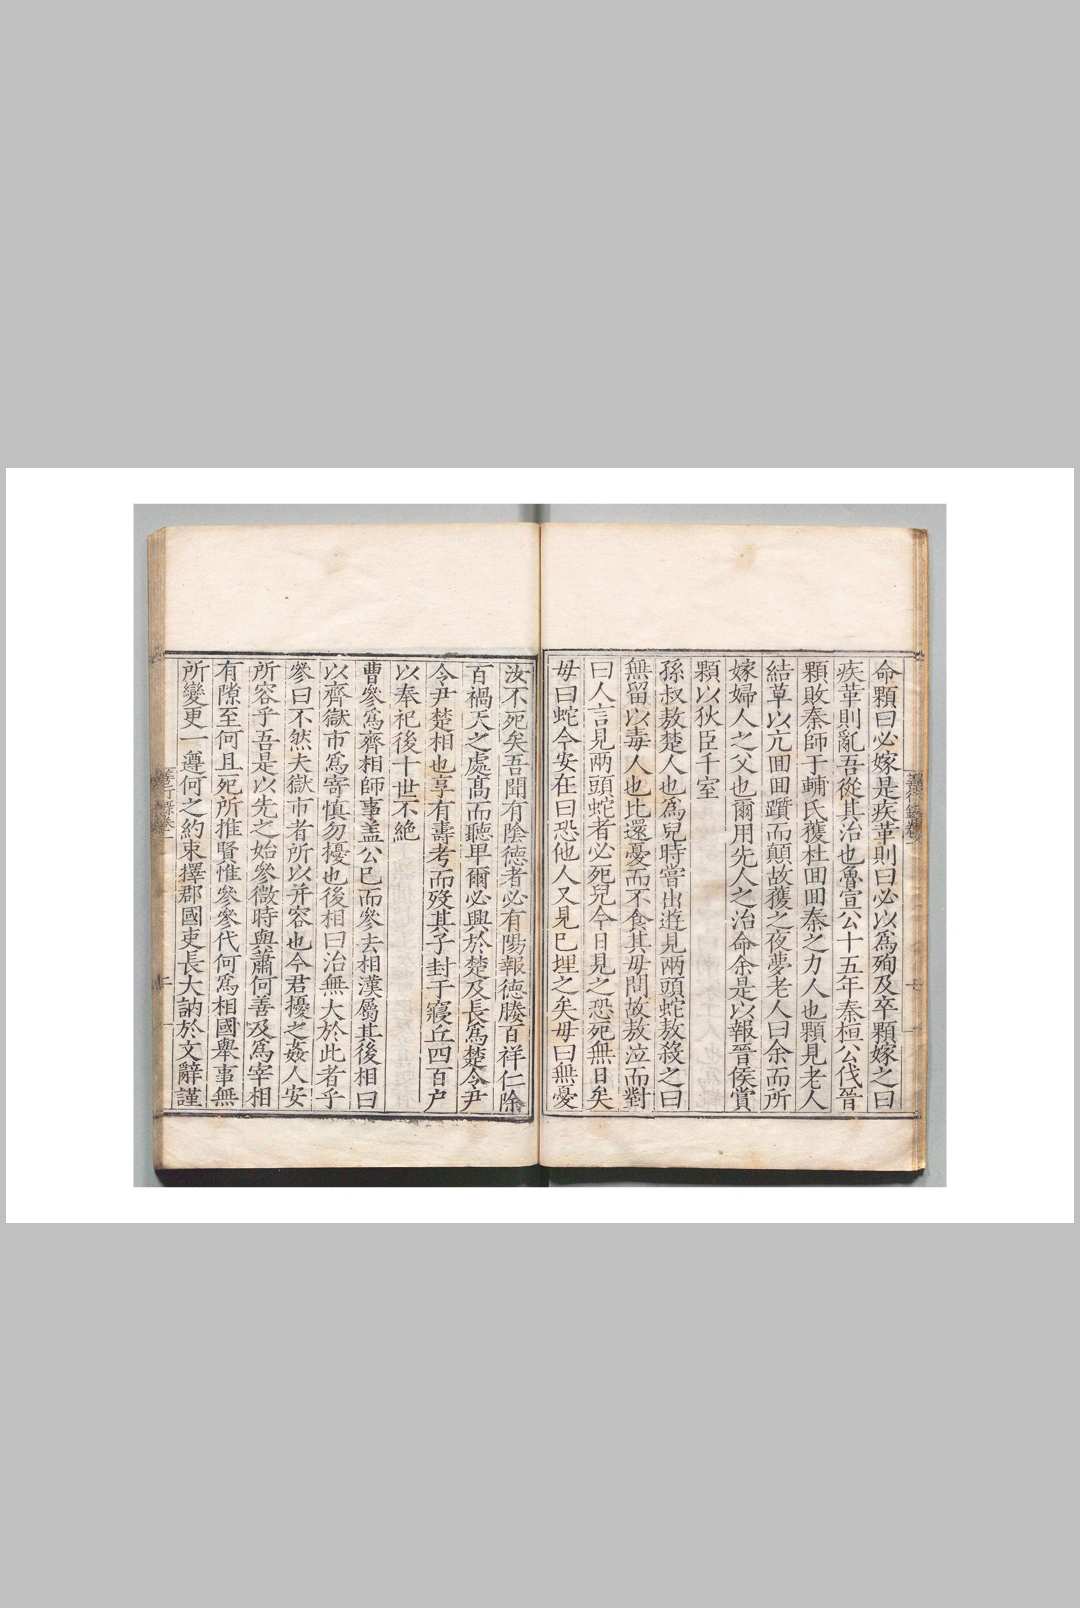 命顆曰必嫁是疾革則曰必以爲殉及卒顆嫁之曰
疾革則亂吾從其治也魯宣公十五年秦桓公伐晉
顆敗秦師于輔氏獲杜囬囬秦之力人也顆見老人
結草以亢囬囬躓而顛故獲之夜夢老人曰余而所
嫁婦人之父也爾用先人之治命余是以報晉侯賞
顆以狄臣千室
孫叔敖楚人也爲兒時嘗出遊見兩頭蛇敖殺之曰
無留以毒人也比還憂而不食其母問故敖泣而對
曰人言見兩頭蛇者必死兒今日見之恐死無日矣
母曰蛇今安在曰恐他人又見已埋之矣母曰無憂
汝不死矣吾聞有陰德者必有陽報德勝百祥仁除
百禍天之處髙而聽卑爾必興於楚及長爲楚令尹
令尹楚相也享有壽考而歿其子封于寢丘四百户
以奉祀後十世不絶
曹參爲齊相師事盖公已而參去相漢屬其後相曰
以齊獄市爲寄慎勿擾也後相曰治無大於此者乎
參曰不然夫獄市者所以并容也今君擾之姦人安
所容乎吾是以先之始參微時與蕭何善及爲宰相
有隙至何且死所推賢惟參參代何爲相國舉事無
所變更一遵何之約束擇郡國吏長大訥於文辭謹